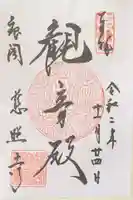 奉拝
令和二年
十一月廿四日
觀音殿
銀閣
慈照寺